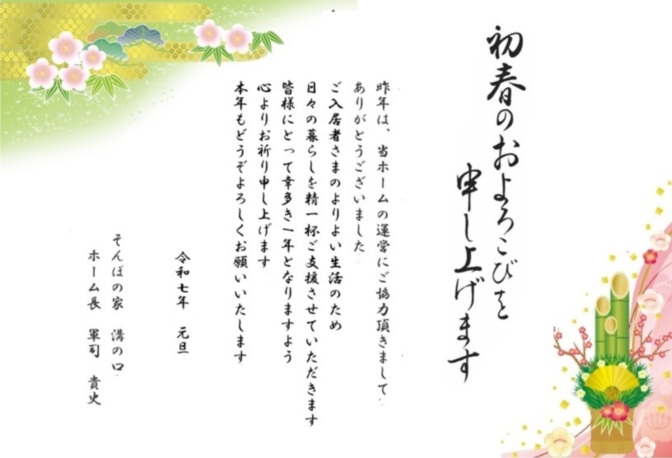 初春のおよろこびを
申し上げます
昨年は、当ホームの運営にご協力頂きまして
ありがとうございました
ご入居者さまのよりよい生活のため
日々の暮らしを精一杯ご支援させていただきます
皆様にとって幸多き一年となりますよう
心よりお祈り申し上げます
本年もどうぞよろしくお願いいたします
令和七年 元旦
そんぽの家 溝の口
ホーム長 軍司 貴史